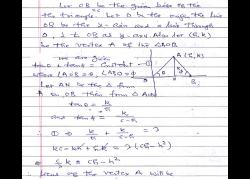 Let OB be the given base of the
the triangle. Let O be the origin the line
OB be the x-axis and a line through
O, ⊥ to OB as y-axis Also let (h, k)
be the vertex A of the ΔAOB
we are given
tanθ + tanϕ = constant
where ∠AOB = θ, ∠ABO = ϕ
Let AN be the ⊥ from
A on OB then from Δ AON
tanθ = k/h
and tanϕ = k/(c-h)
① ⇒ k/h + k/(c-h) = λ
kc - kh + kh = λ (ch - h²)
k = ch - h²
of the vertex A will be
A (h, k)